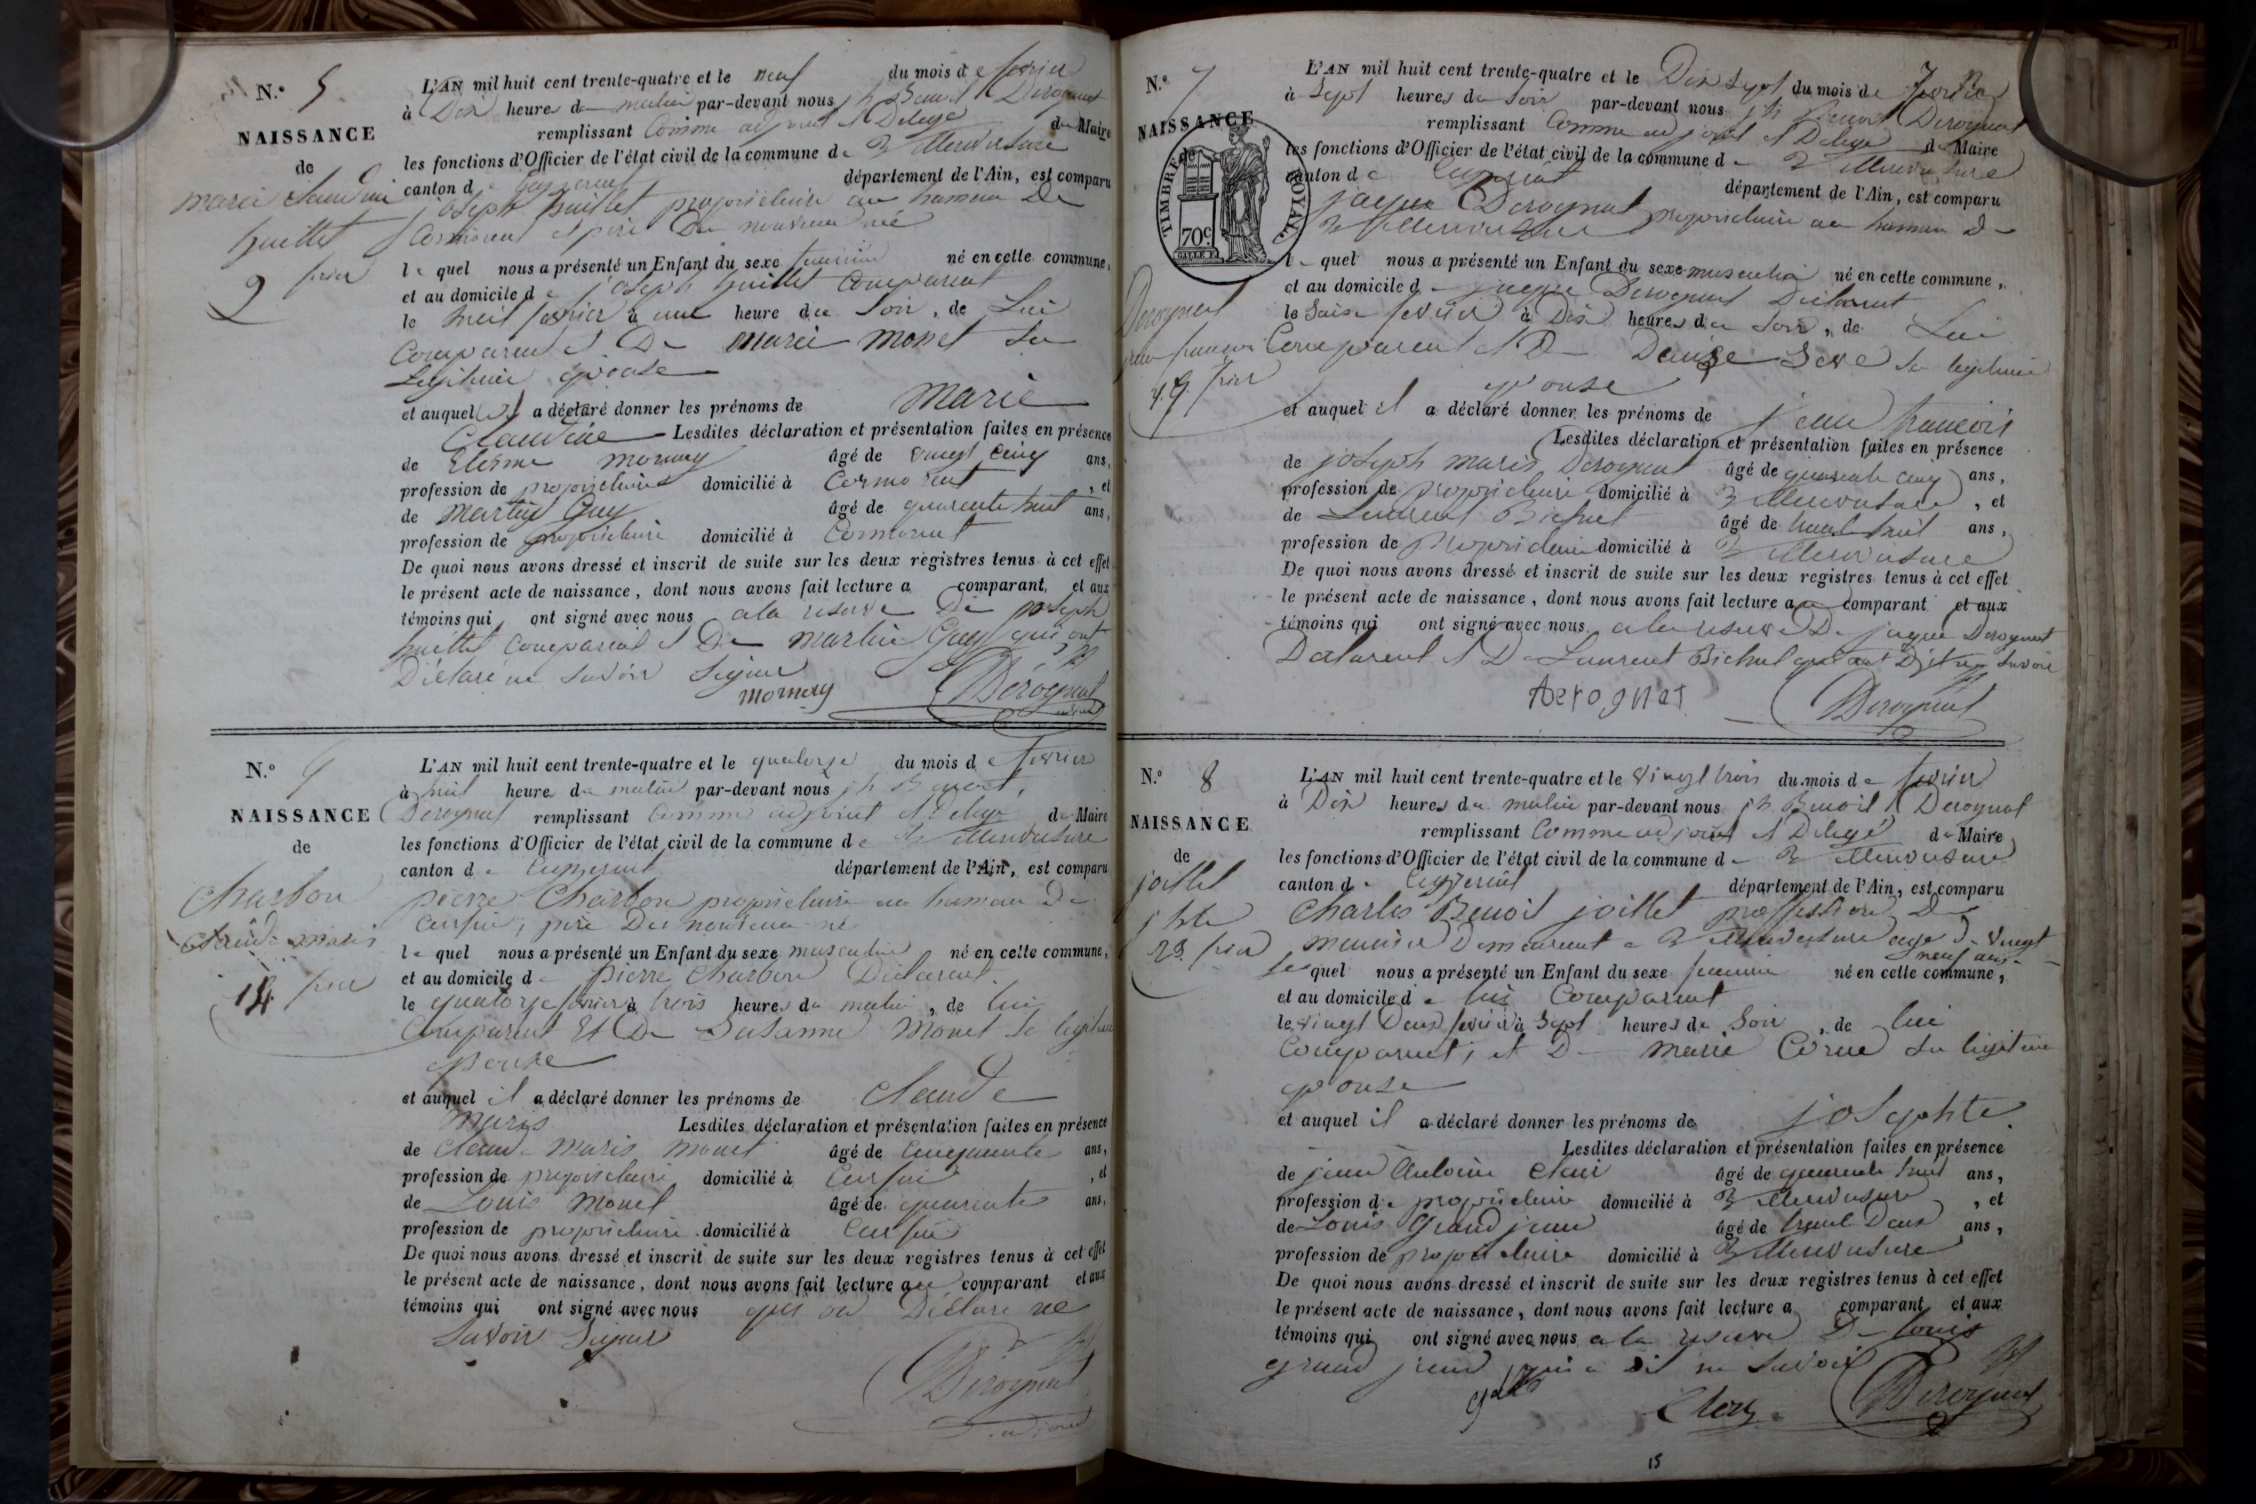 N.º 5
NAISSANCE
de
marie Claudine
huillet
2 frier
L'AN mil huit cent trente-quatre et le neuf du mois de fevrier
à Dix heures du matin par-devant nous jh Benoit Derognat
remplissant Comme adjoint et Delegé du Maire
les fonctions d'Officier de l'état civil de la commune de Villeneuve
canton de département de l'Ain, est comparu
joseph huillet proprietaire au hameau De
Cormorent et pere Du nouveau né
le quel nous a présenté un Enfant du sexe feminin né en cette commune,
et au domicile de joseph huillet Comparent
le huit fevrier à une heure du Soir, de Lui
Comparent et De marie monet Sa
Legitime epouse
et auquel il a déclaré donner les prénoms de Marie
Claudine Lesdites déclaration et présentation faites en présence
de Etienne mornay âgé de vingt cinq ans,
profession de proprietaire domicilié à Cormorent, et
de Martin Guy âgé de quarente huit ans,
profession de proprietaire domicilié à Cormorent
De quoi nous avons dressé et inscrit de suite sur les deux registres tenus à cet effet
le présent acte de naissance, dont nous avons fait lecture a comparant, et aux
témoins qui ont signé avec nous a la reserve De joseph
huillet Comparent et De Martin Guy qui ont
Déclaré ne Savoir Signer
mornay Derognat
N.º
NAISSANCE
de
Charbon
Claude maris
14 frier
L'AN mil huit cent trente-quatre et le quatorze du mois de fevrier
à huit heures du matin par-devant nous jh Benoit
Derognat remplissant Comme adjoint et Delegé du Maire
les fonctions d'Officier de l'état civil de la commune de
canton de département de l'Ain, est comparu
pierre Charbon proprietaire au hameau De
Curfin, père Du nouveau né
le quel nous a présenté un Enfant du sexe masculin né en cette commune,
et au domicile de pierre Charbon Déclarent
le quatorze fevrier à trois heures du matin, de lui
Comparent Et De Susanne Monet Sa legitime
epouse
et auquel il a déclaré donner les prénoms de Claude
Maris Lesdites déclaration et présentation faites en présence
de Claude maris monet âgé de Cinquante ans,
profession de proprietaire domicilié à Curfin, et
de Louis Monet âgé de quarente ans,
profession de proprietaire domicilié à Curfin
De quoi nous avons dressé et inscrit de suite sur les deux registres tenus à cet effet
le présent acte de naissance, dont nous avons fait lecture au comparant et aux
témoins qui ont signé avec nous qui on Déclaré ne
Savoir Signer
Derognat
adjoint
N.º 7
NAISSANCE
de
TIMBRE ROYAL
70c
Derognat
jean francois
17 frier
L'AN mil huit cent trente-quatre et le Dix Sept du mois de fevrier
à Sept heures du Soir par-devant nous jh Benoit Derognat
remplissant Comme adjoint et Delegé du Maire
les fonctions d'Officier de l'état civil de la commune de
canton de département de l'Ain, est comparu
jaque Derognat proprietaire au hameau De
le quel nous a présenté un Enfant du sexe masculin né en cette commune,
et au domicile de jaque Derognat Déclarent
le Saize fevrier à Dix heures du Soir, de Lui
Comparent et De Denise Seve Sa legitime
epouse
et auquel il a déclaré donner les prénoms de jean francois
Lesdites déclaration et présentation faites en présence
de joseph maris Derognat âgé de quarente cinq ans,
profession de proprietaire domicilié à, et
de Laurent Bichet âgé de trente huit ans,
profession de proprietaire domicilié à
De quoi nous avons dressé et inscrit de suite sur les deux registres tenus à cet effet
le présent acte de naissance, dont nous avons fait lecture au comparant et aux
témoins qui ont signé avec nous a la reserve De jaque Derognat
Déclarent et De Laurent Bichet qui ont Dit ne Savoir
Derognat Derognat
N.º 8
NAISSANCE
de
joillet
jphte
23 frier
L'AN mil huit cent trente-quatre et le vingt trois du mois de fevrier
à Dix heures du matin par-devant nous jh Benoit Derognat
remplissant Comme adjoint et Delegé du Maire
les fonctions d'Officier de l'état civil de la commune de
canton de département de l'Ain, est comparu
Charles Benoit joillet proffession De
meunier Demeurent a agé De vingt
neuf ans
le quel nous a présenté un Enfant du sexe feminin né en cette commune,
et au domicile de lui Comparent
le vingt Deux fevrier à Sept heures du Soir, de lui
Comparent, et De marie Cornu Sa legitime
epouse
et auquel il a déclaré donner les prénoms de josephte
Lesdites déclaration et présentation faites en présence
de jean Antoine Clair âgé de quarente huit ans,
profession de proprietaire domicilié à, et
de Louis Grand jean âgé de trente Deux ans,
profession de proprietaire domicilié à
De quoi nous avons dressé et inscrit de suite sur les deux registres tenus à cet effet
le présent acte de naissance, dont nous avons fait lecture a comparant et aux
témoins qui ont signé avec nous a la reserve De Louis
grand jean qui a Dit ne Savoir
Clerc Derognat
15